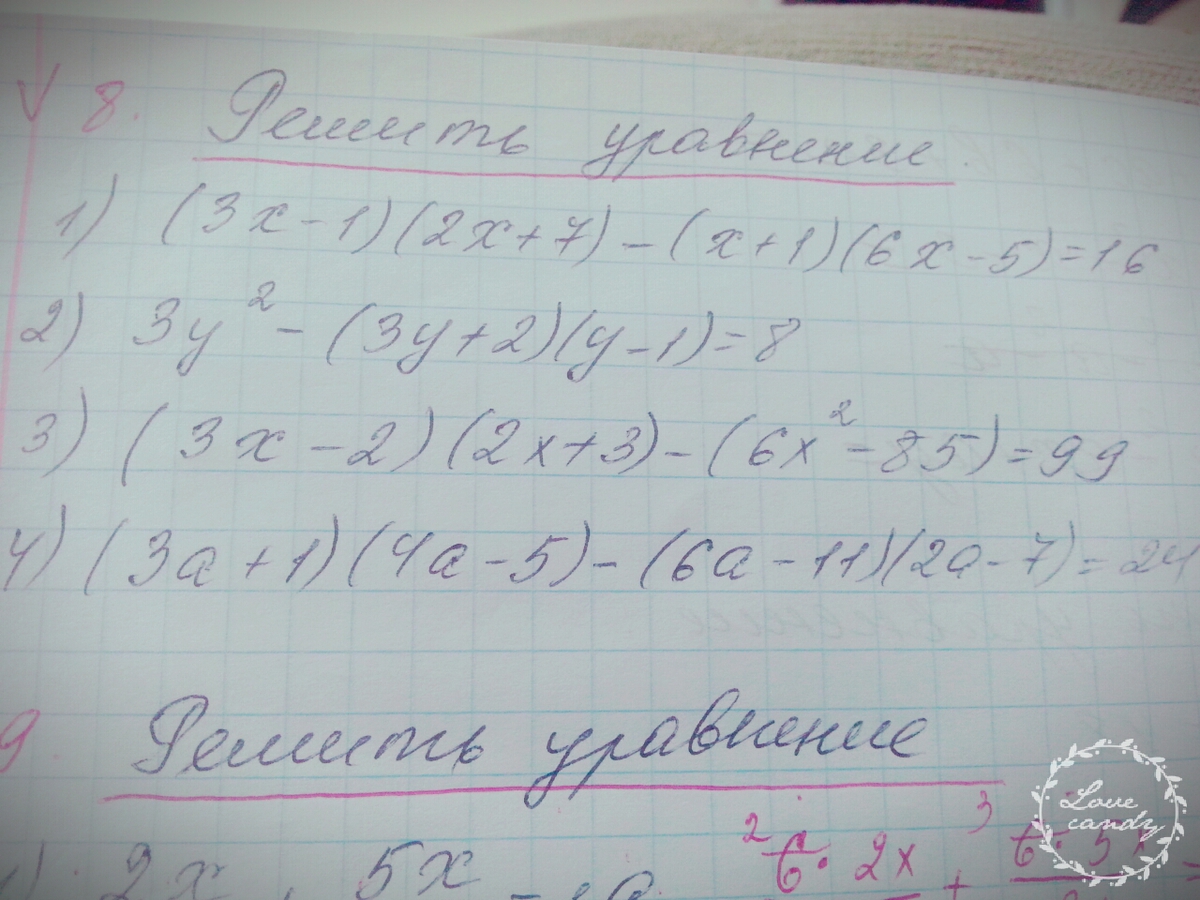 √ 8. Решить уравнение.
1) (3x-1)(2x+7)-(x+1)(6x-5)=16
2) 3y²-(3y+2)(y-1)=8
3) (3x-2)(2x+3)-(6x²-85)=99
4) (3a+1)(4a-5)-(6a-11)(2a-7)=24
9. Решить уравнение
1) 2x 5x 2 6· 2x + 3 6· 5x
Love
candy